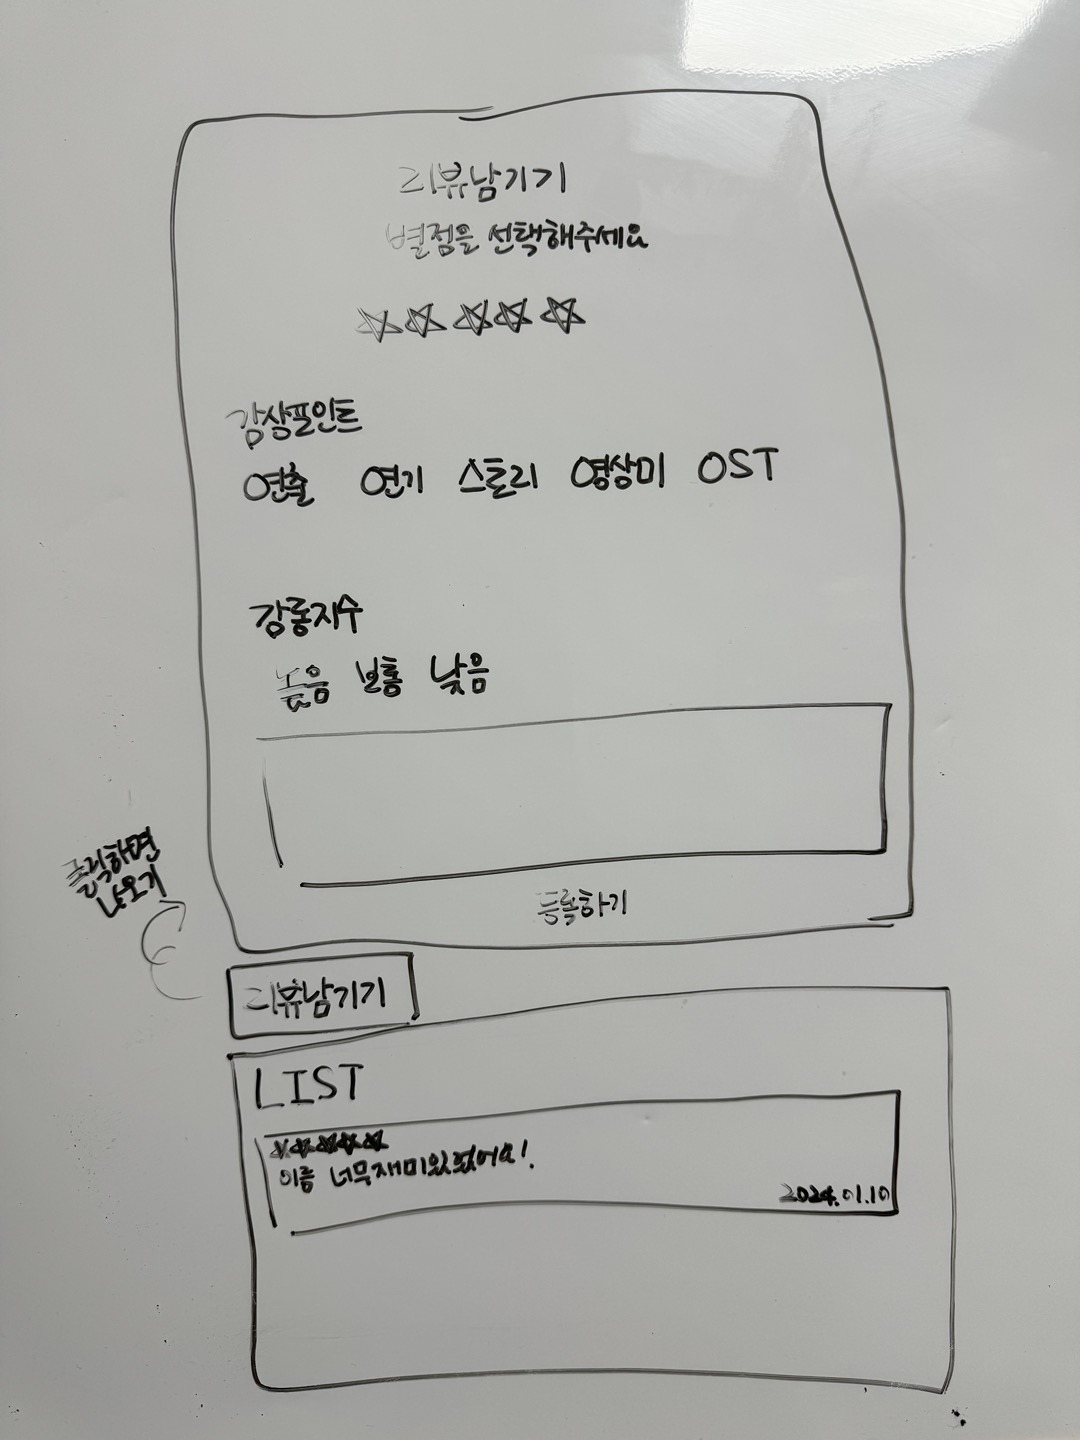 리뷰남기기
별점을 선택해주세요
감상포인트
연출 연기 스토리 영상미 OST
감동지수
높음 보통 낮음
등록하기
클릭하면
나오기
리뷰남기기
LIST
이름 너무재미있었어요!
2024.01.10